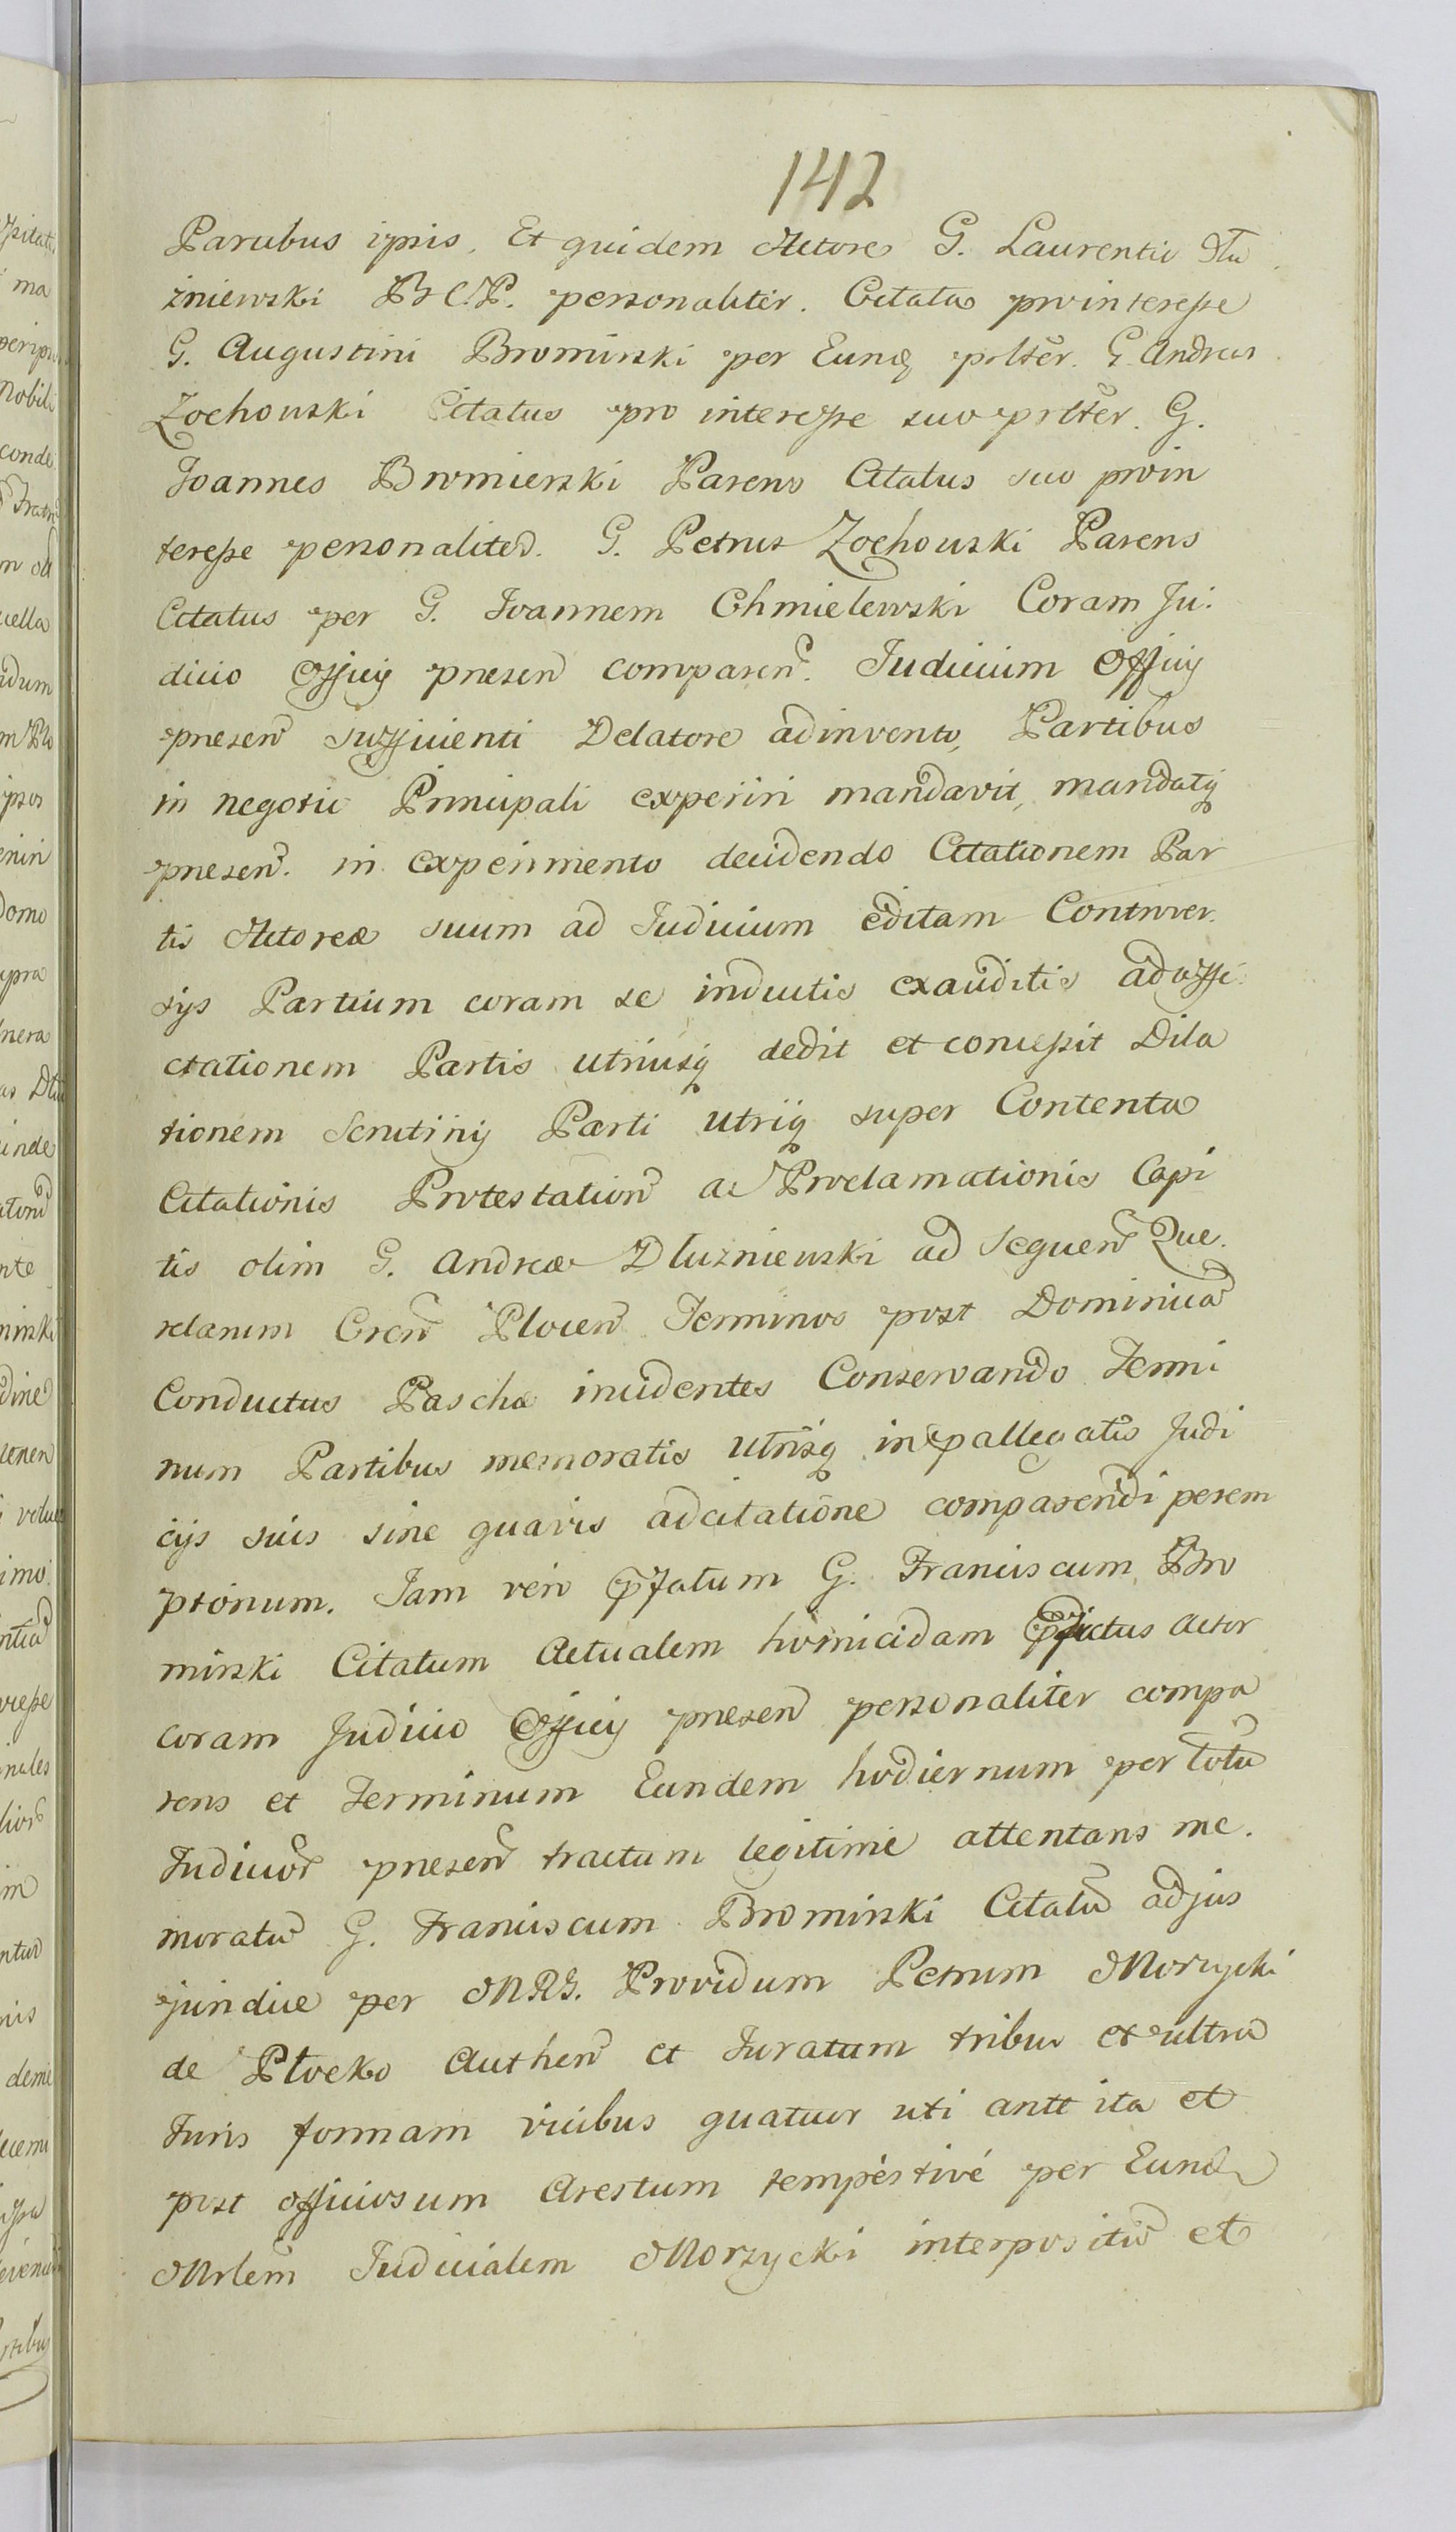 142
Partibus ipsis. Et quidem Actore G. Laurentio Dłu
żniewski BCP. personaliter. Citata prointeresse
G. Augustini Brominski per Eundq psltẽr. G. Andreas
Zochowski Citatus pro interesse suo psltẽr. G.
Joannes Bromierski Parens Citatus suo proin
teresse personaliter. G. Petrus Zochowski Parens
Citatus per G. Joannem Chmielewski Coram Ju.
dicio Officij præsen comparen. Judicium Officij
præsen sufficienti Delatore adinvento, Partibus
in negotio Principali experiri mandavit, mandatq
præsen. in experimento decidendo Citationem Par
tis Actoreæ suum ad Judicium editam Controver.
sijs Partium coram se inductis exauditis ad affe
ctationem Partis utriusq dedit et concessit Dila
tionem Scrutinij Parti utriq super Contenta
Citationis Protestation ac Proclamationis Capi
tis olim G. Andreæ Dłuzniewski ad sequen Que.
relarum Cren Plocen Terminos post Dominica
Conductus Paschæ incidentes Conservando Termi
num Partibus memoratis utrisq in ꝑallegatis Judi
cijs suis sine quavis adcitatione comparendi perem
ptorium. Jam vero ꝑfatum G. Franciscum Bro
minski Citatum Actualem homicidam ꝑdictus Actor
coram Judicio Officij præsen personaliter compa
rens et Terminum Eundem hodiernum per totũ
Judicior præsen tractum legitime attentans me.
moratũ G. Franciscum Brominski Citatũ adjus
juridice per MRG. Providum Petrum Morzycki
de Płocko Authen et Juratum tribus et ultra
Juris formam vicibus quatuor uti ante ita et
post officiosum Arestum tempéstivé per Eund
Mrlem Judicialem Morzycki interpositũ et